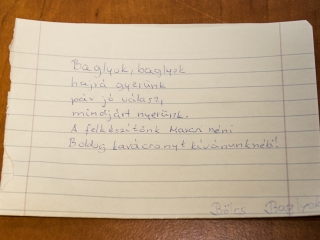 Baglyok, baglyok
hajrá gyerünk
pár jó válasz,
mindjárt nyerünk.
A felkészítőnk Marcsi néni
Boldog karácsonyt kívánunk neki!
Bölcs Baglyok